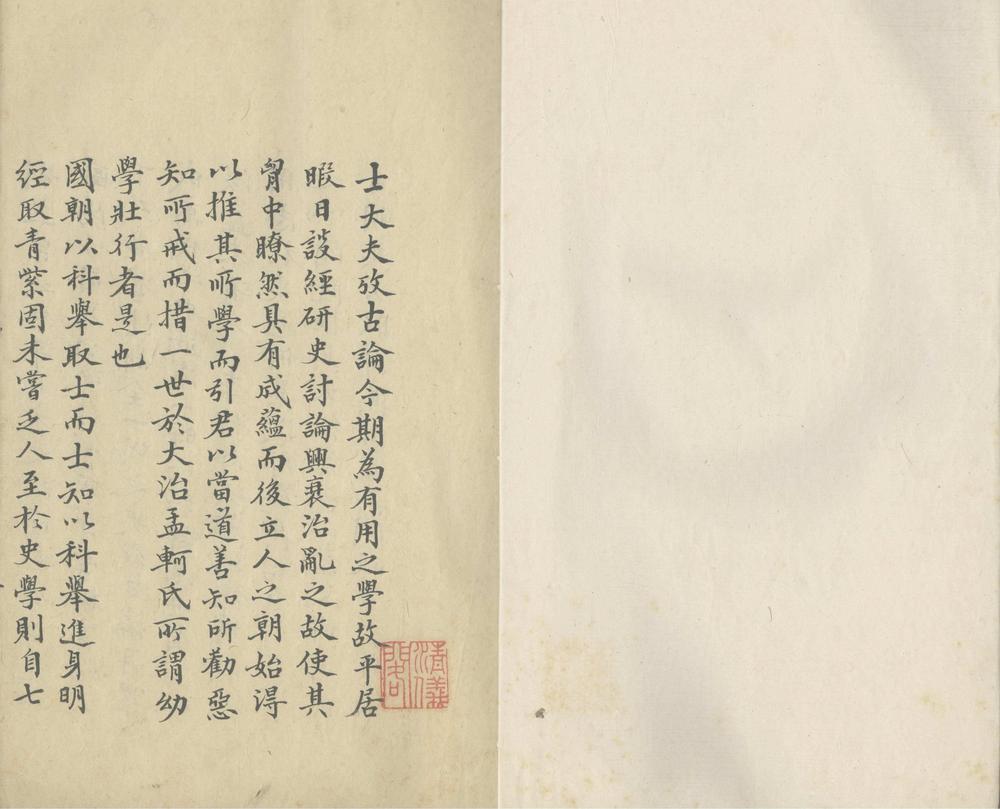 士大夫攷古論今期為有用之學故平居
暇日談經研史討論興衰治亂之故使其
胷中瞭然具有成蘊而後立人之朝始得
以推其所學而引君以當道善知所勸惡
知所戒而措一世於大治孟軻氏所謂幼
學壯行者是也
國朝以科舉取士而士知以科舉進身明
經取青紫固未嘗乏人至於史學則自七
清儀閣